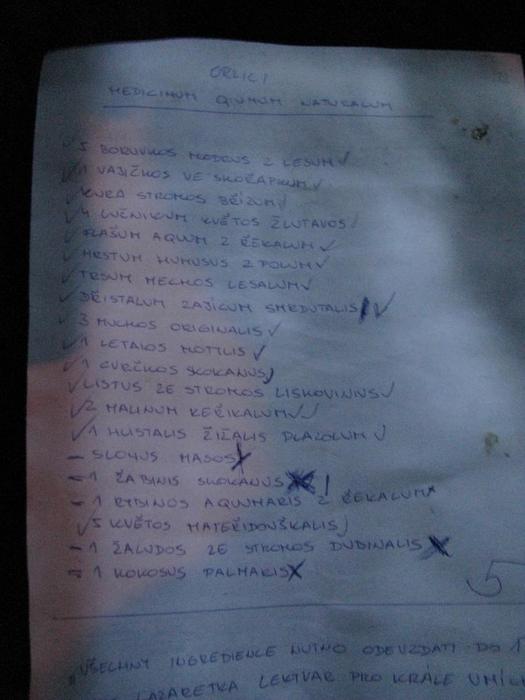 ORLICI
MEDICINUM QIUMUM NATURALUM
✓ 5 BORUVKOS MODRUS Z LESUM ✓
✓ 1 VAJIČKOS VE SKOŘÁPKUM ✓
✓ KURA STROMOS BŘÍZUM ✓
✓ 4 LUČNIKUM KVĚTOS ŽLUTAVOS ✓
✓ FLAŠUM AQUM Z ŘEKALUM ✓
✓ HRSTUM HUMUSUS Z POLUM ✓
✓ TRSUM MECHOS LESALUM ✓
✓ DŘISTALUM ZAJICUM SMRDUTALIS ✓
✓ 3 MUCHOS ORIGINALIS ✓
✓ 1 LETAJOS MOTTLIS ✓
✓ 1 CVRČKOS SKOKANUS
✓ LISTUS ZE STROMOS LISKOVINIUS ✓
✓ 2 MALINUM KEŘIKALUM ✓
✓ 1 HLISTALIS ŽIŽALIS PLAZOLUM ✓
- SLONUS MASOS X
- 1 ŽABINIS SKOKANUS X !
- 1 RYBINOS AQUMARIS Z ŘEKALUM X
✓ 5 KVĚTOS MATEŘIDOUŠKALIS
- 1 ŽALUDOS ZE STROMOS DUBINALIS X
- 1 KOKOSUS PALMARIS X
5
"VŠECHNY INGREDIENCE NUTNO ODEVZDATI DO 1
LAZARETKA LEKTVAR PRO KRÁLE